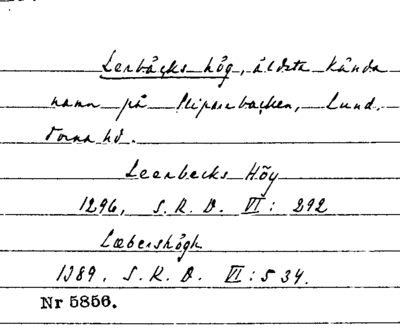 Lerbäcks hög, äldsta kända
namn på Sliparebacken, Lund.
Torna hd.
Leerbecks Höy
1296. S. R. D. VI: 292
Læbershögh
1389. S. R. D. VI: 534.
Nr 5856.